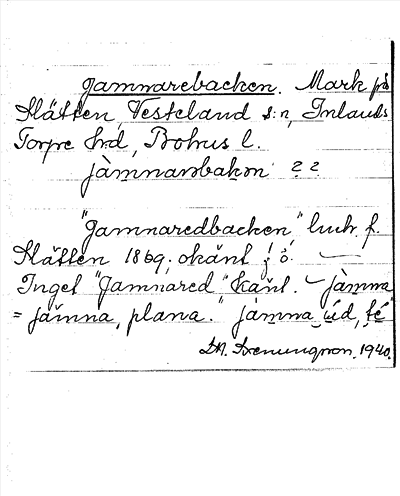 Jammarebacken. Mark på
Slätten, Vesterland s:n, Inlands
Torpe h:d, Bohus l.
jàmnarəbakən ??
"Jamnaredbacken" enl. f.
Slätten 1869, okänt
Inget "Jamnared" känt. – jàmna
= jämna, plana." jàmna úd, 
1940.